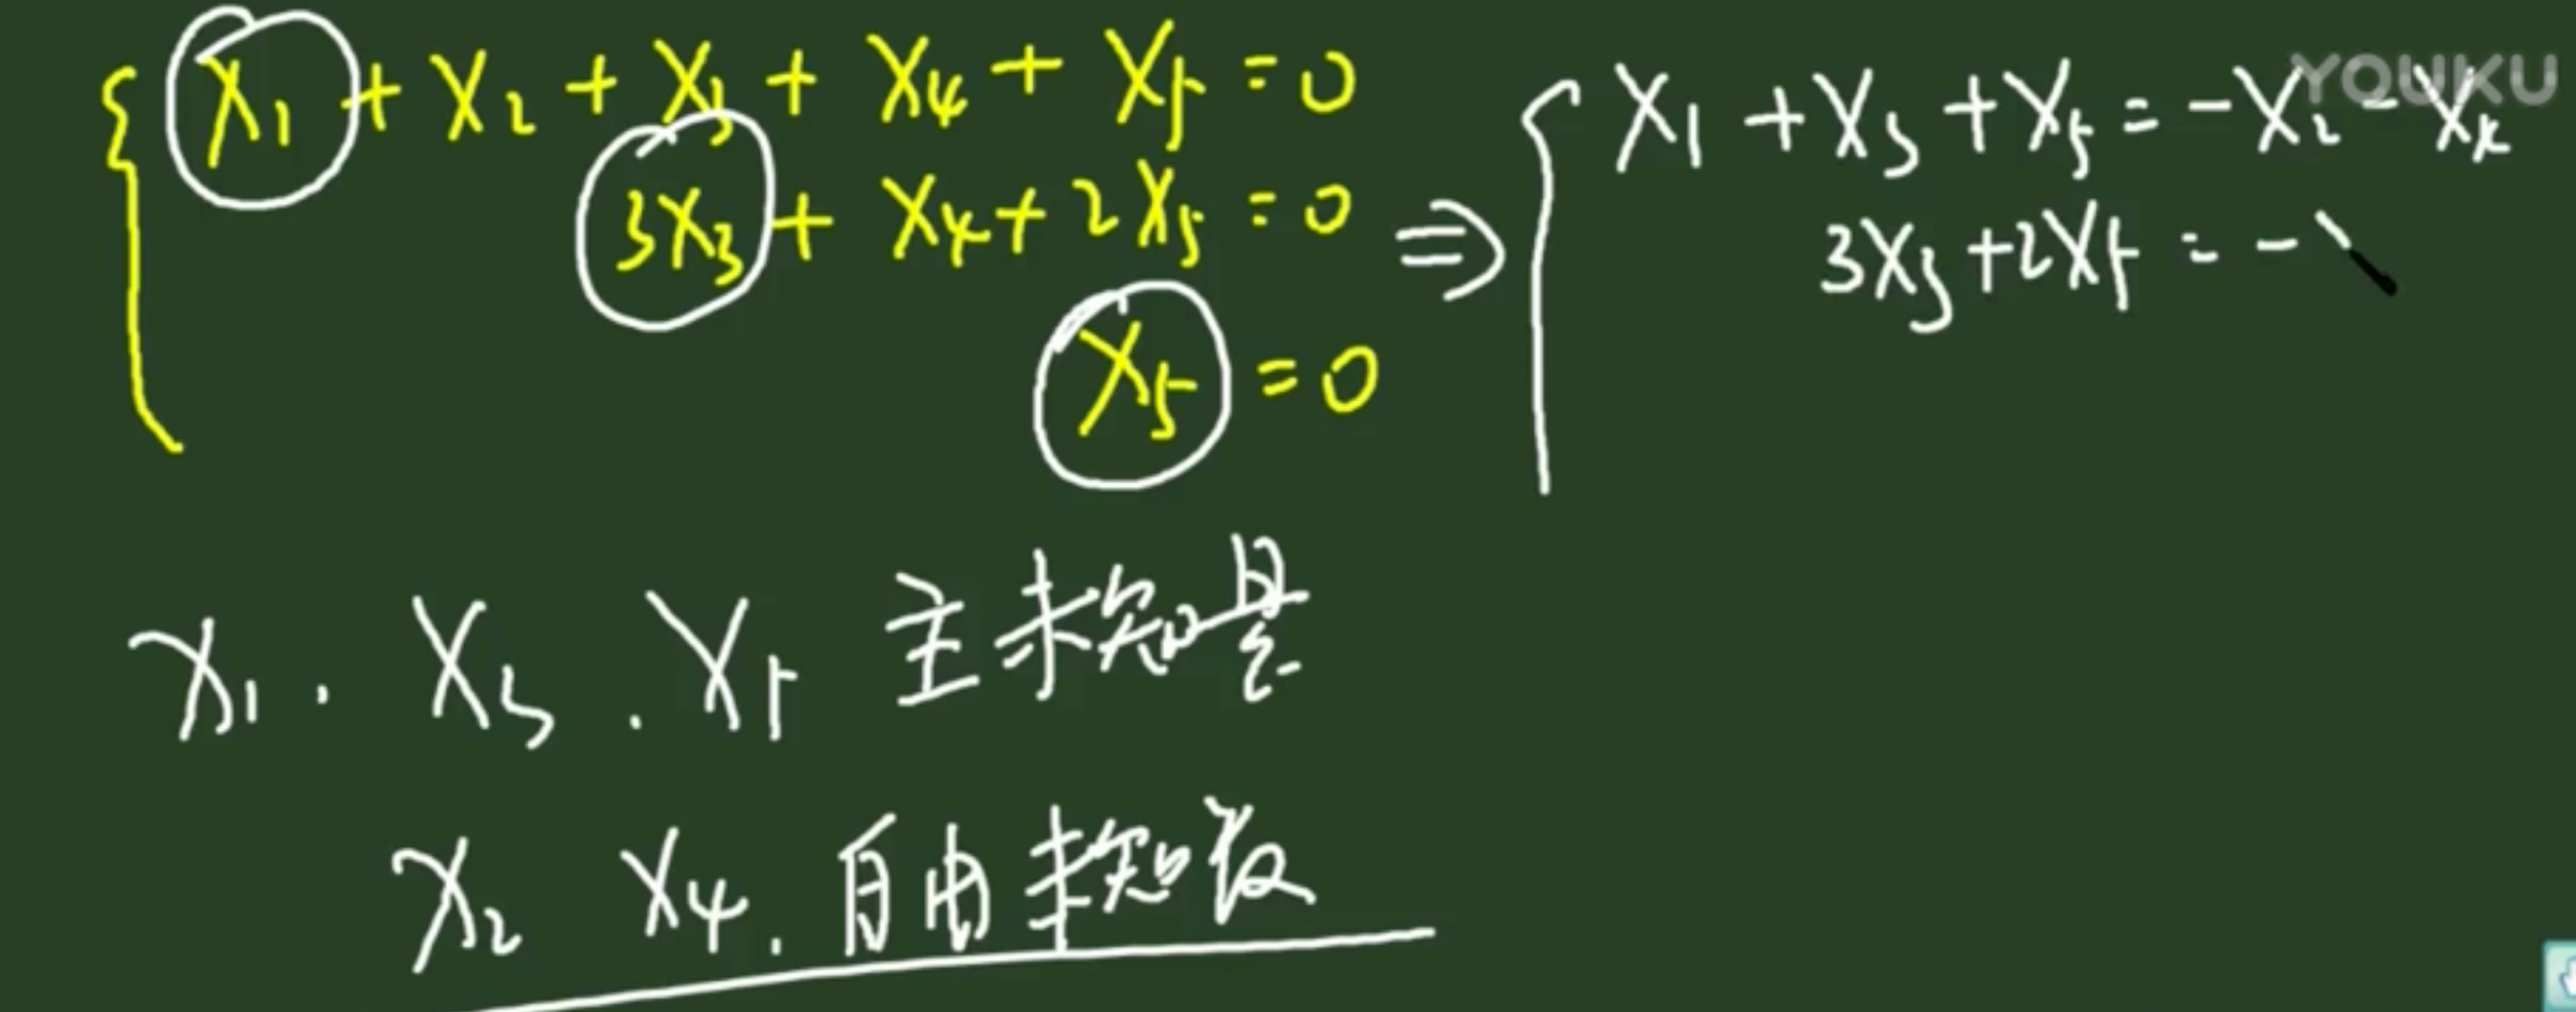 x₁ + x₂ + x₃ + x₄ + x₅ = 0
3x₃ + x₄ + 2x₅ = 0
x₅ = 0
⇒
x₁ + x₃ + x₅ = -x₂ - x₄
3x₃ + 2x₅ = -
YOUKU
x₁. x₃. x₅ 主未知量
x₂ x₄. 自由未知数